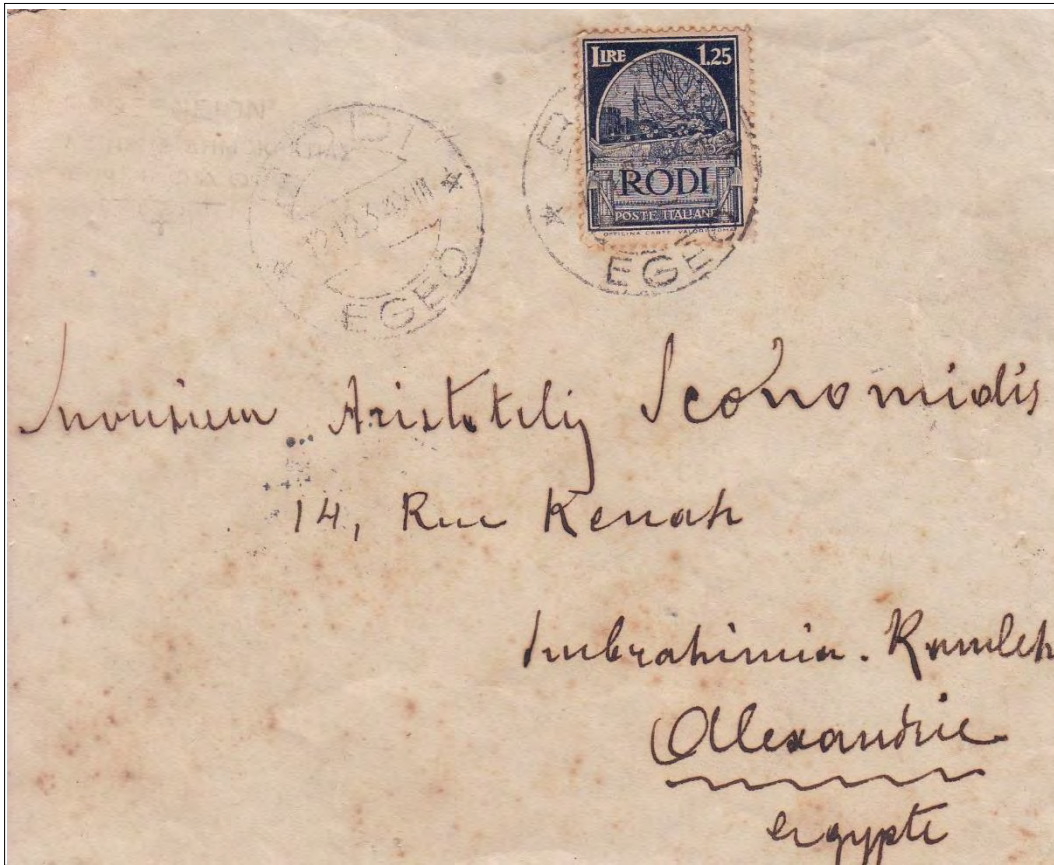 LIRE 1.25
RODI
POSTE ITALIANE
OFFICINA CARTE VALORI ROMA
RODI
EGEO
EGEO
Monsieur Aristotelis Iconomidis
14, Rue Kenah
Imbrahimia. Ramleh
Alexandrie
Egypte